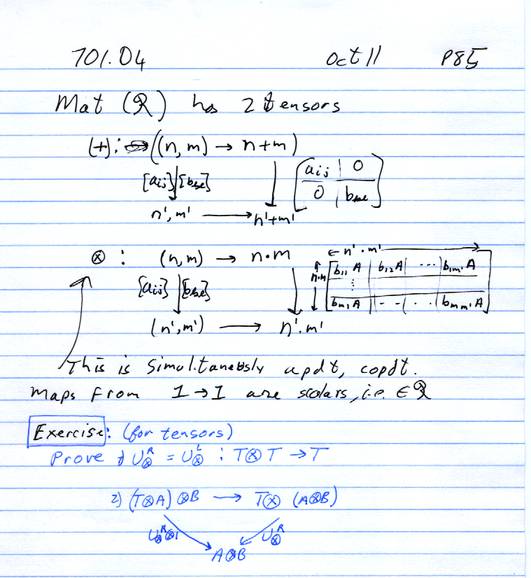 701.04 Oct 11 P85
Mat (R) has 2 tensors
(+): ((n, m) → n+m)
[aij] [bke] (aij | 0
n', m' → n'+m' 0 | bke)
← n'·m' →
⊗ : (n, m) → n·m n·m b11 A | b12 A | ··· | b1m' A
[aij] [bke] ⋮
(n', m') → n'·m' bm1 A | -- | ·· | bmm' A
This is simultaneously a pdt, copdt.
Maps from 1→I are scalars, i.e. ∈ R
Exercise: (for tensors)
Prove 1) U⊗^R = U⊗^L : T⊗T → T
2) (T⊗A)⊗B → T⊗(A⊗B)
U⊗^R⊗1 U⊗^R
A⊗B